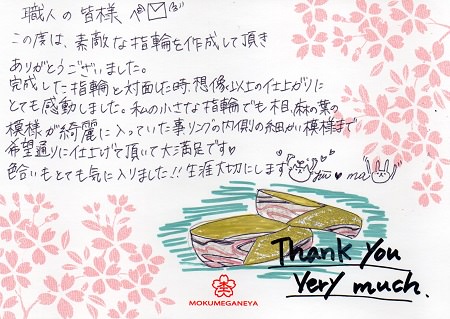 職人の皆様へ
この度は、素敵な指輪を作成して頂き
ありがとうございました。
完成した指輪と対面した時、想像以上の仕上がりに
とても感動しました。私の小さな指輪でも柾、麻の葉の
模様が綺麗に入っていた事リングの内側の細かい模様まで
希望通りに仕上げて頂いて大満足です
色合いもとても気に入りました!!生涯大切にします
Thank you
Very much.
MOKUMEGANEYA